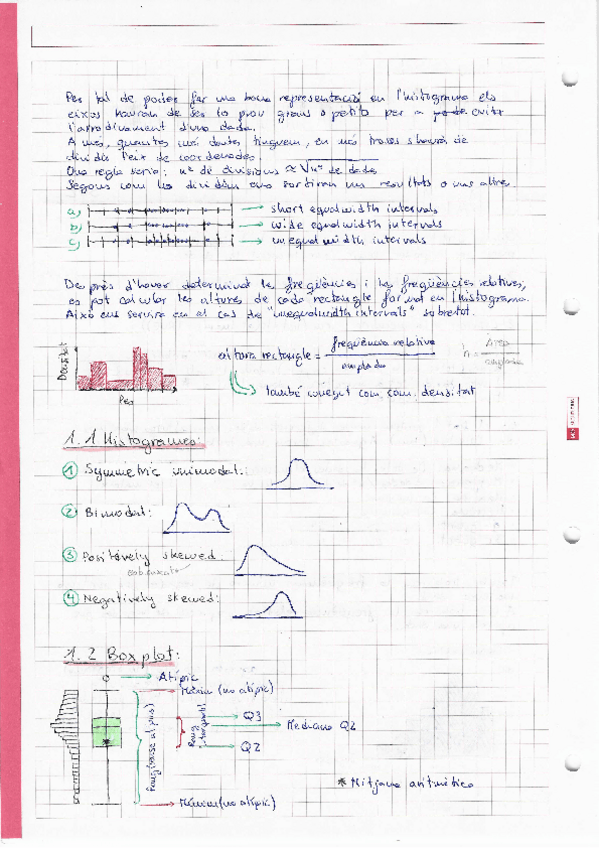 Per tal de poder fer una bona representació en l'histograma els
eixos hauran de ser lo prou grans o petits per a evitar
l'arrodoniment d'una dada.
A més, quantes més dades tinguem, en més trossos s'haurà de
dividir l'eix de coordenades.
Una regla seria: nº de divisions ≈ √nº de dades
Segons com ho dividim ens sortiran uns resultats o uns altres.
a) → short equalwidth intervals
b) → wide equalwidth intervals
c) → unequalwidth intervals
Després d'haver determinat les freqüències i les freqüències relatives,
es pot calcular les altures de cada rectangle format en l'histograma.
Això ens servirà en el cas de "unequalwidth intervals" sobretot.
Densitat
Pes
altura rectangle = freqüència relativa
amplada
h = Àrea
amplada
també conegut com a densitat
1.1 Histogrames:
1 Symmetric unimodal:
2 Bimodal:
3 Positively skewed:
4 Negatively skewed:
1.2 Boxplot:
Atípic
Màxim (no atípic)
Q3
Mediana Q2
Q2
* Mitjana aritmètica
Mínim (no atípic)